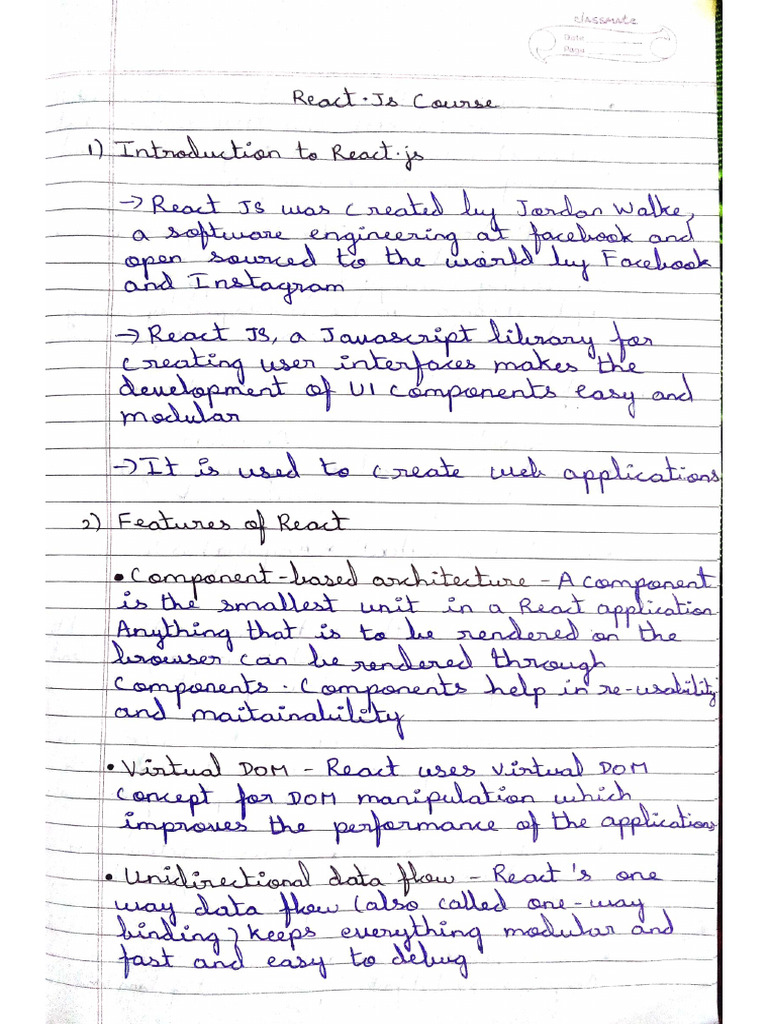 classmate
Date
Page
React.Js Course
1) Introduction to React.js
→ React JS was created by Jordan Walke,
a software engineering at facebook and
open sourced to the world by Facebook
and Instagram
→ React JS, a Javascript library for
creating user interfaces makes the
development of UI components easy and
modular
→ It is used to create web applications
2) Features of React
• Component-based architecture - A component
is the smallest unit in a React application
Anything that is to be rendered on the
browser can be rendered through
components. Components help in re-usability
and maitainability
• Virtual DOM - React uses virtual DOM
concept for DOM manipulation which
improves the performance of the applications
• Unidirectional data flow - React's one
way data flow (also called one-way
binding) keeps everything modular and
fast and easy to debug